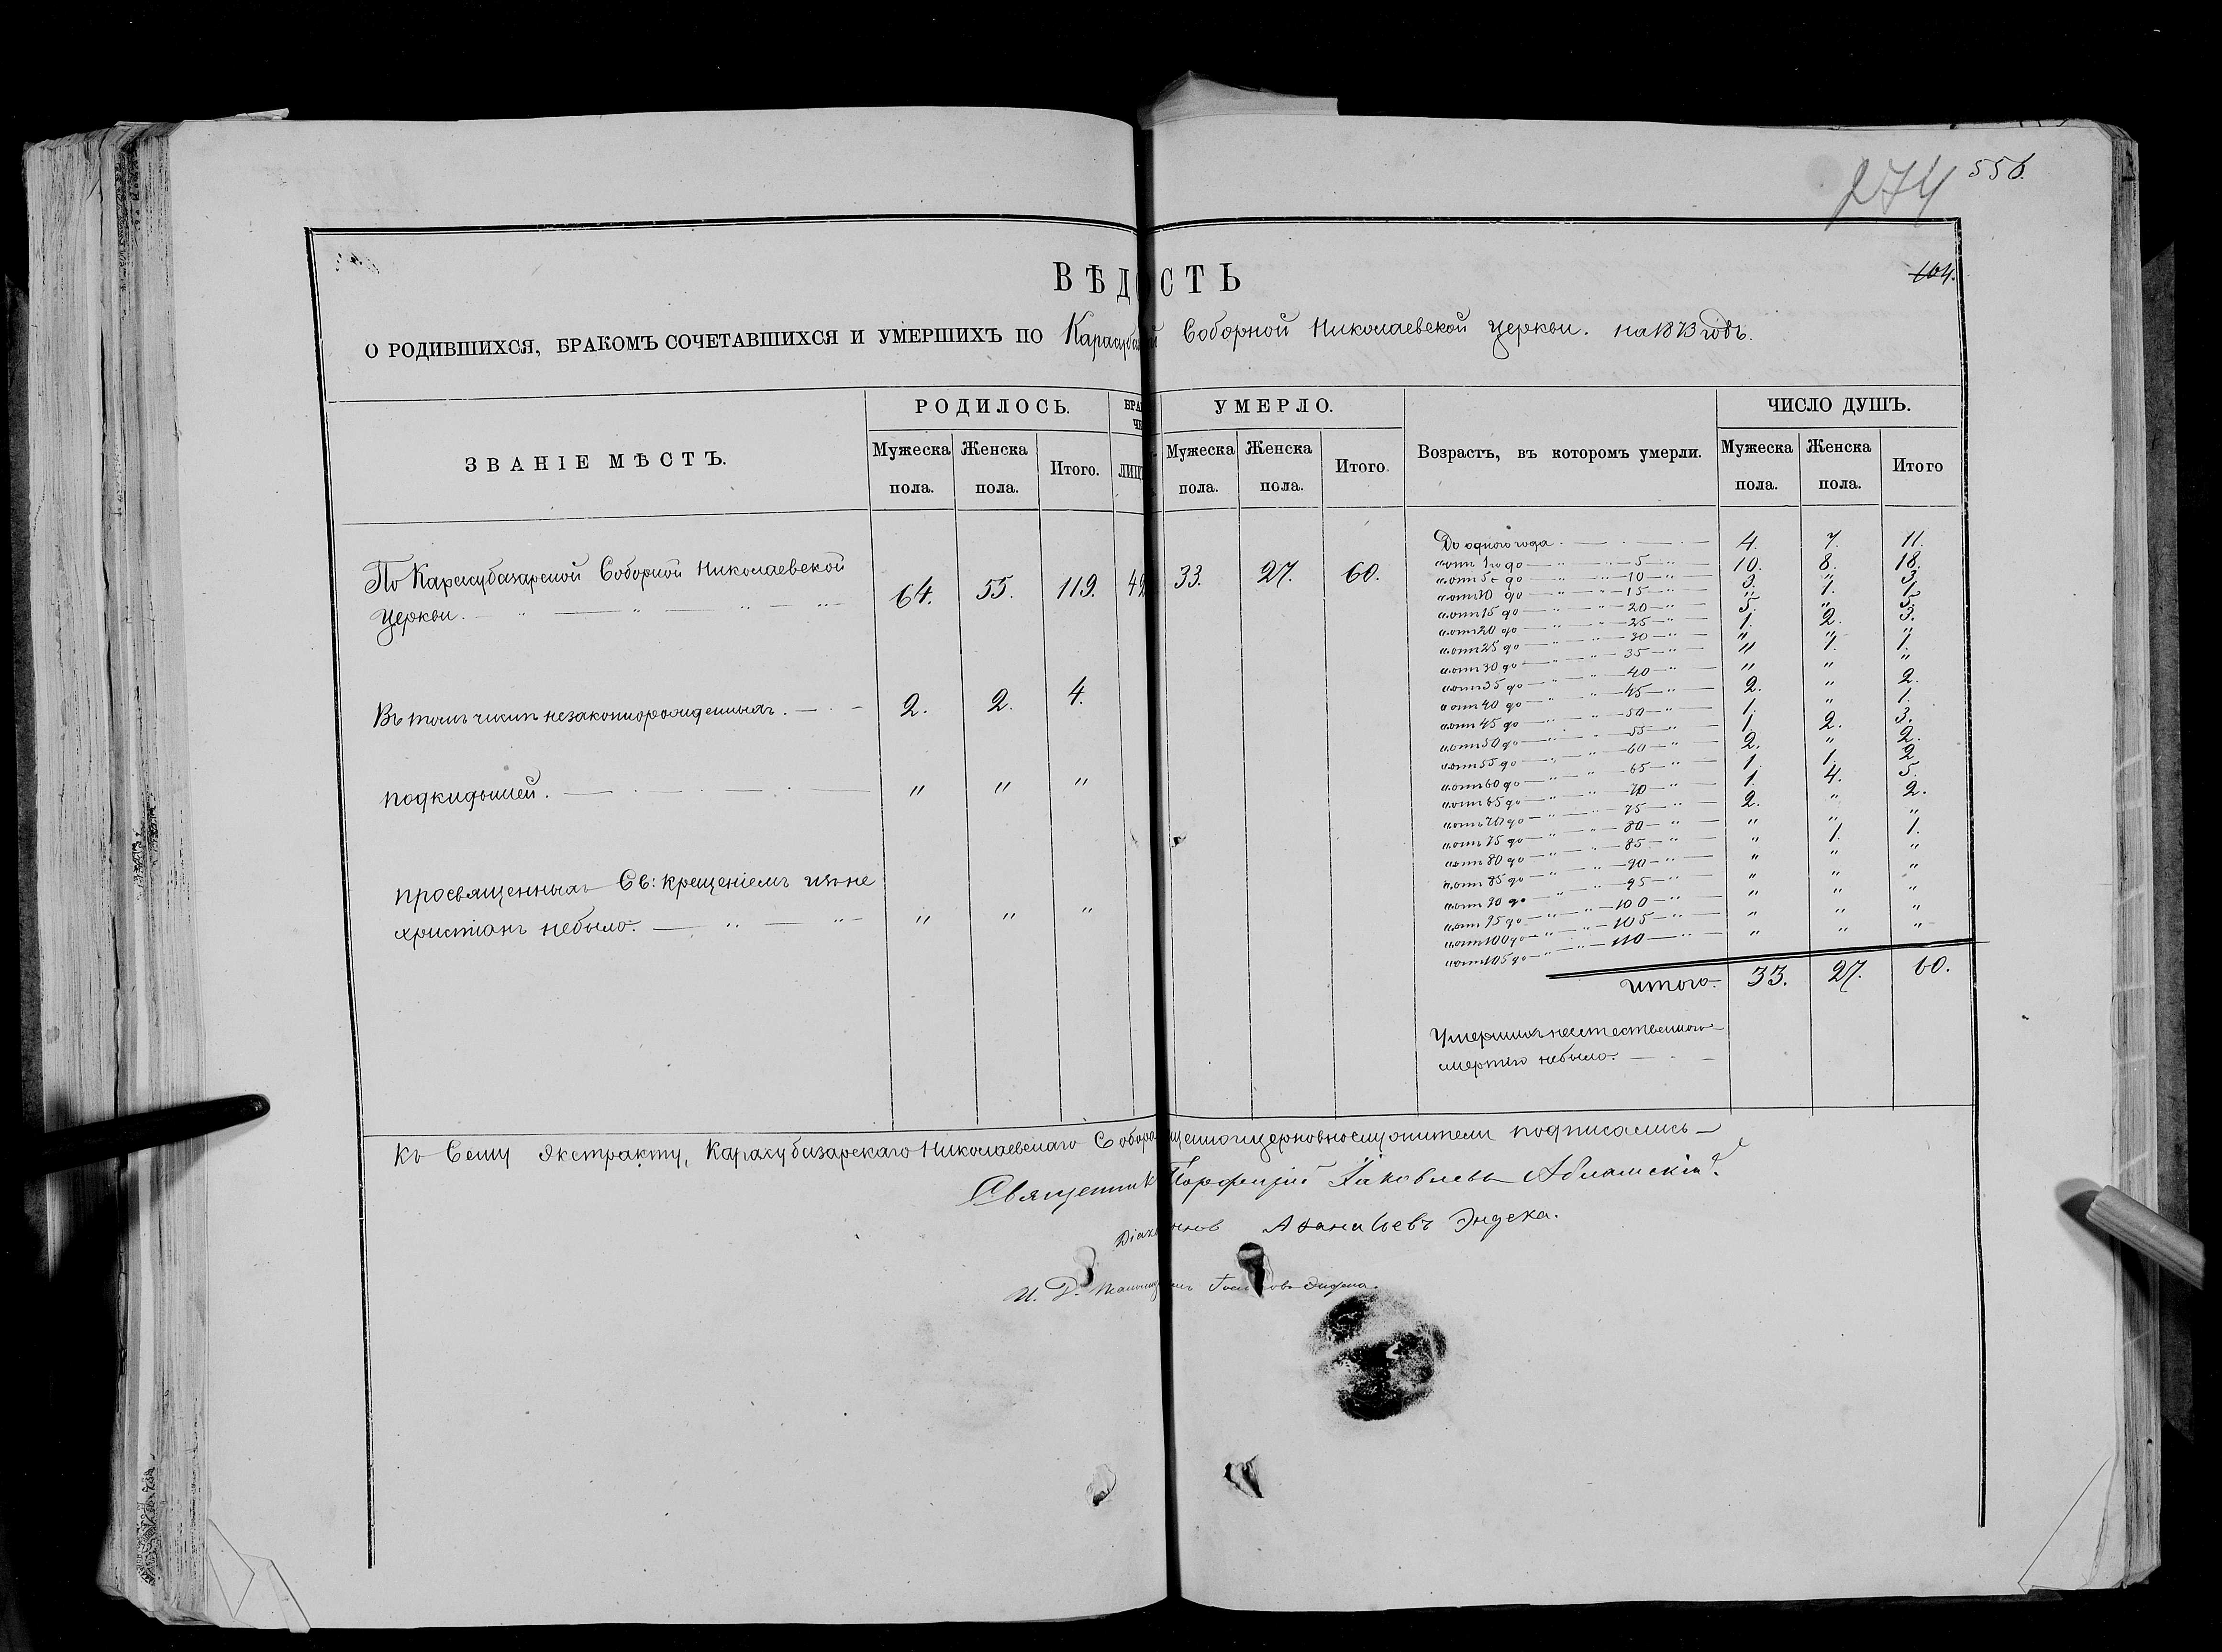 274 556.
104.
ВѢДОСТЬ
О РОДИВШИХСЯ, БРАКОМЪ СОЧЕТАВШИХСЯ И УМЕРШИХЪ ПО Карасубаз й Соборной Николаевской церкви. на 1873 годъ.
ЗВАНІЕ МѢСТЪ. РОДИЛОСЬ. БРА УМЕРЛО. Возрастъ, въ которомъ умерли. ЧИСЛО ДУШЪ.
Мужеска пола. Женска пола. Итого. ЛИЦ Мужеска пола. Женска пола. Итого. Мужеска пола. Женска пола. Итого
По Карасубазарской Соборной Николаевской
церкви. 64. 55. 119. 42 33. 27. 60.
Въ томъ числѣ незаконнорожденныхъ. 2. 2. 4.
подкидышей. " " "
просвященныхъ Св: крещеніемъ изъ не
христіанъ небыло. " " "
До одного года 4. 7. 11.
"отъ 1го до " " 5 " 10. 8. 18.
"отъ 5 до " " 10 " 3. " 3.
"отъ 10 до " " 15 " " 1. 1.
"отъ 15 до " " 20 " 5. " 5.
"отъ 20 до " " 25 " 1. 2. 3.
"отъ 25 до " " 30 " " " "
"отъ 30 до " " 35 " " 1. 1.
"отъ 35 до " " 40 " " " "
"отъ 40 до " " 45 " 2. " 2.
"отъ 45 до " " 50 " 1. " 1.
"отъ 50 до " " 55 " 1. 2. 3.
"отъ 55 до " " 60 " 2. " 2.
"отъ 60 до " " 65 " 1. 1. 2.
"отъ 65 до " " 70 " 1. 4. 5.
"отъ 70 до " " 75 " 2. " 2.
"отъ 75 до " " 80 " " " "
"отъ 80 до " " 85 " " 1. 1.
"отъ 85 до " " 90 " " " "
"отъ 90 до " " 95 " " " "
"отъ 95 до " " 100 " " " "
"отъ 100 до " " 105 " " " "
"отъ 105 до " " 110 " " " "
итого. 33. 27. 60.
Умершихъ неестественною
смертію небыло.
Къ Сему Экстракту, Карасубазарскаго Николаевскаго Собора подписались
Священник Порфирій Іаковлевъ
Діак Аѳанасьевъ Эндека.
И. Д. Эндека.